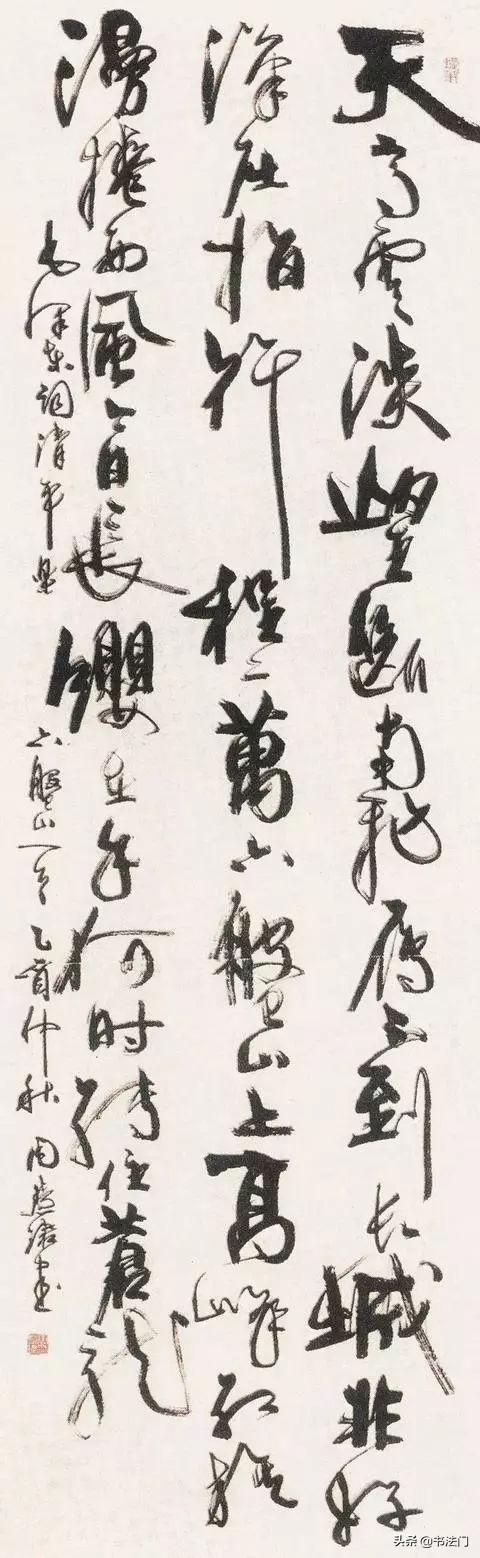 天高雲淡望断南飛雁不到长城非好
漢屈指行程二萬六盤山上高峰红旗
漫捲西風今日長纓在手何时縛住蒼龍
毛澤東詞清平樂
六盤山一首 乙酉仲秋 周慧珺書
头条 @书法门